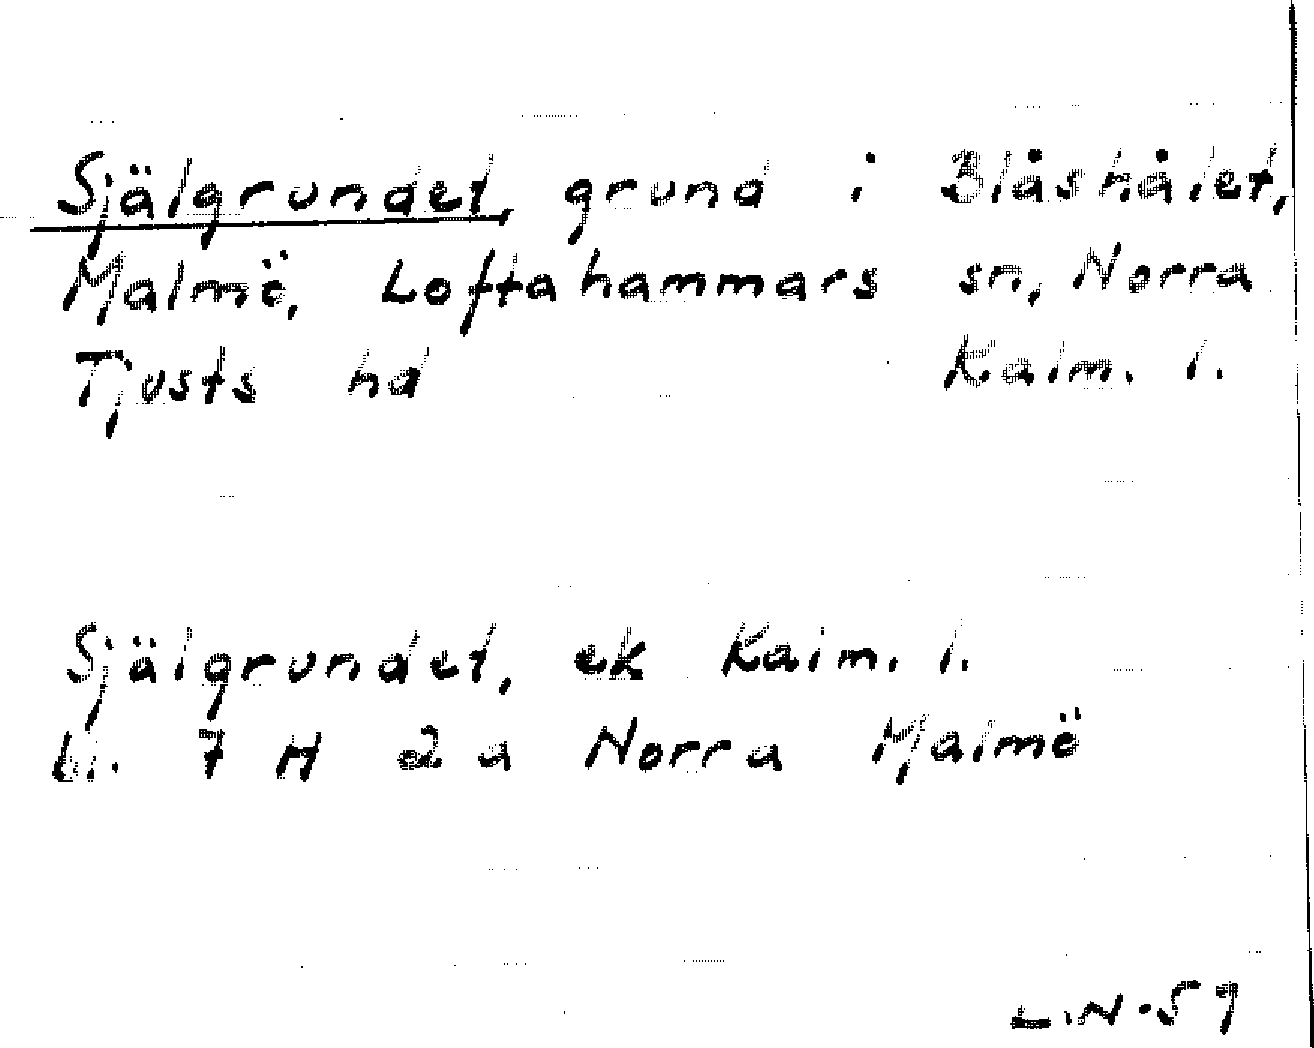 Själgrundet, grund i Blåshålet,
Malmö, Loftahammars sn, Norra
Tjusts hd Kalm. l.
Själgrundet, ek Kalm. l.
bl. 7 H 2 a Norra Malmö
L.N.59